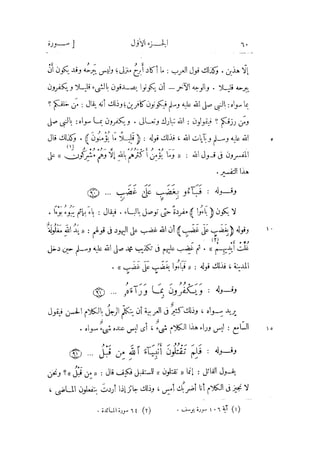 ٦٠ الجزء الأول [ سورة
إلا هذين. وكذلك قول العرب: ما أكاد أبرح منزلى؛ وليس يبرحه وقد يكون أن
يبرحه قليلا. والوجه الآخر — أن يكونوا يصدقون بالشىء قليلا ويكفرون
بما سواه: بالنبى صلى الله عليه وسلم فيكونون كافرين؛ وذلك أنه يقال: مَن خلقكم؟
ومن رزقكم؟ فيقولون: الله تبارك وتعالى. ويكفرون بما سواه: بالنبى صلى
الله عليه وسلم وبآيات الله، فذلك قوله: ﴿قَلِيلًا مَا يُؤْمِنُونَ﴾. وكذلك قال ٥
المفسرون فى قول الله: «وَمَا يُؤْمِنُ أَكْثَرُهُمْ بِاللهِ إِلَّا وَهُمْ مُشْرِكُونَ» على
هذا التفسير.
وقوله: فَبَآءُو بِغَضَبٍ عَلَىٰ غَضَبٍ ... ﴿٩٠﴾
لا يكون ﴿باءوا﴾ مفردة حتى توصل بالباء. فيقال: باء بإثم يبوء بَوْءًا.
وقوله ﴿بِغَضَبٍ عَلَى غَضَبٍ﴾ أن الله غضب على اليهود فى قولهم: «يَدُ اللهِ مَغْلُولَةٌ ١٠
غُلَّتْ أَيْدِيهِمْ (٢)». ثم غضب عليهم فى تكذيب محمد صلى الله عليه وسلم حين دخل
المدينة، فذلك قوله: «فَبَاءُوا بِغَضَبٍ عَلَى غَضَبٍ».
وقوله: وَيَكْفُرُونَ بِمَا وَرَآءَهُۥ ... ﴿٩١﴾
يريد سواه، وذلك كثير فى العربية أن يتكلم الرجل بالكلام الحسن فيقول
السامع: ليس وراء هذا الكلام شىء، أى ليس عنده شىء سواه. ١٥
وقوله: فَلِمَ تَقْتُلُونَ أَنۢبِيَآءَ ٱللَّهِ مِن قَبْلُ ... ﴿٩١﴾
يقول القائل: إنما «تقتلون» للمستقبل فكيف قال: «من قبل»؟ ونحن
لا نجيز فى الكلام أنا أضربك أمس، وذلك جائز إذا أردت بتفعلون الماضى،
(١) آية ١٠٦ سورة يوسف. (٢) ٦٤ سورة المائدة.